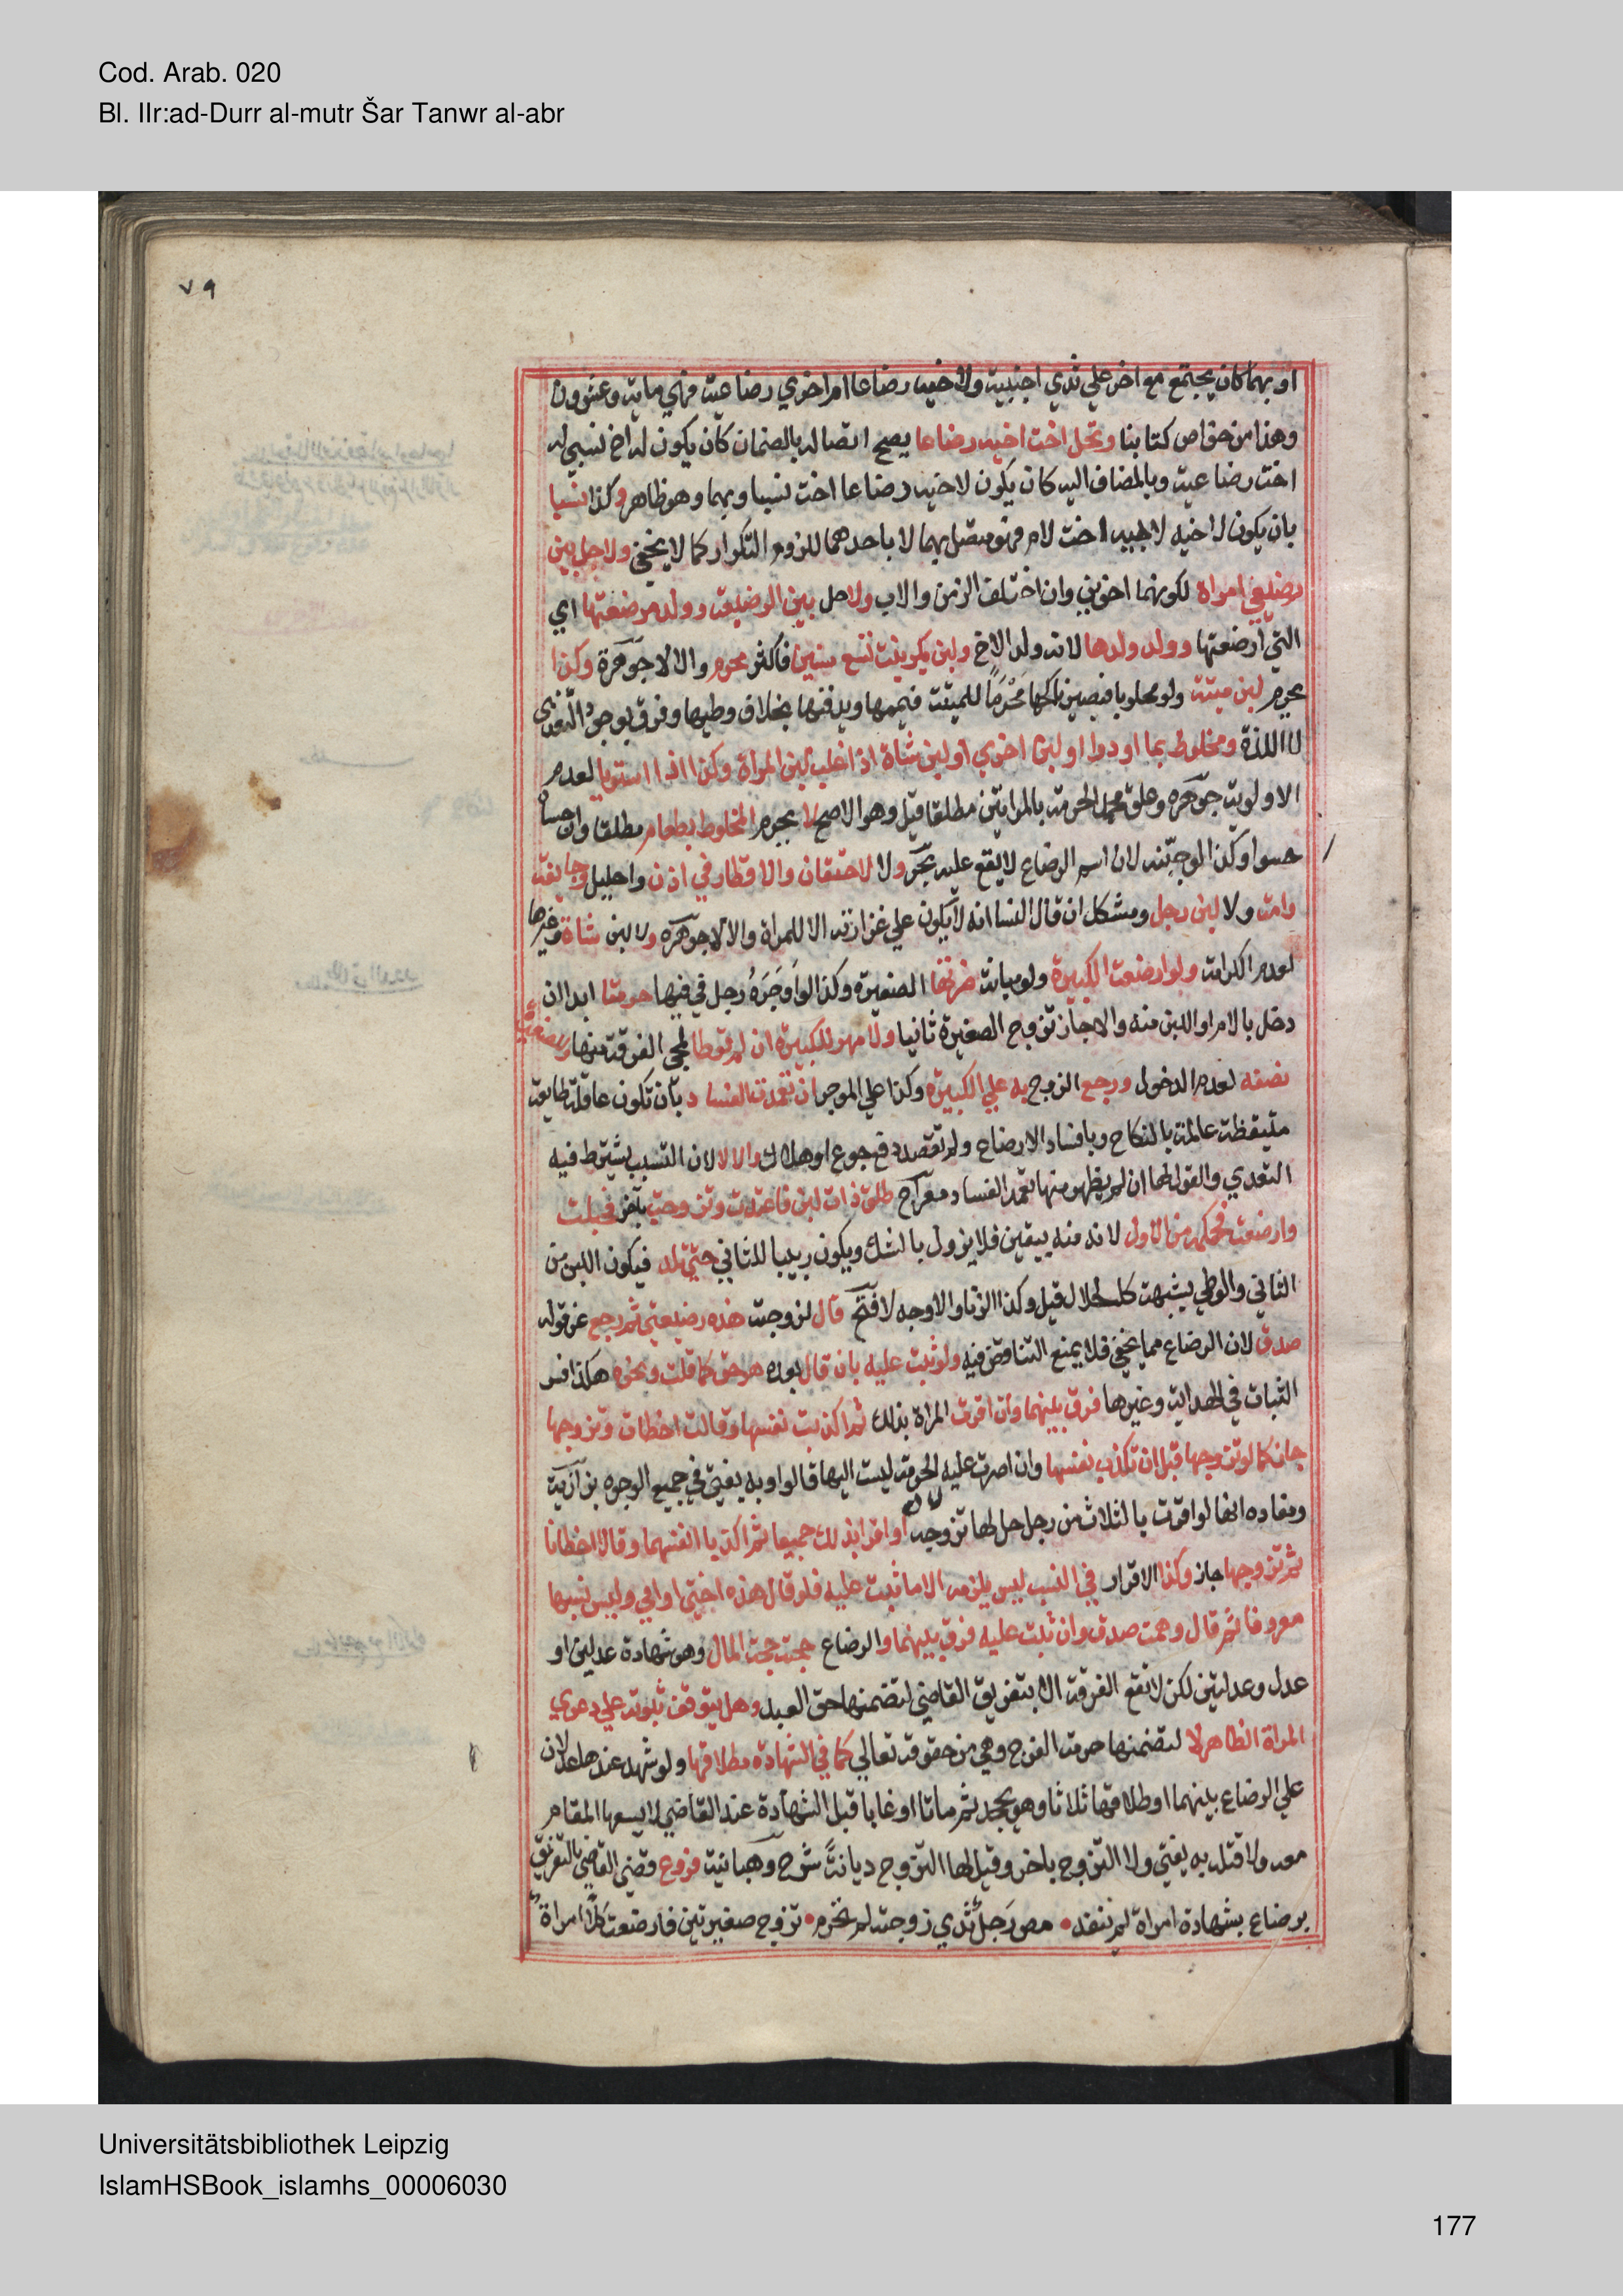 Cod. Arab. 020
Bl. IIr:ad-Durr al-mutr Šar Tanwr al-abr
٧٩
او بهما كان يجتمع مع اخر على ثدي اجنبية ولاخيه رضاعا ام اخري رضاعية فهي ماية وعشرون
وهذا من خواص كتابنا وتحل اخت اخيه رضاعا يصح اتصاله بالضمان كان يكون له اخ نسبي له
اخت رضاعية وبالمضاف اليه كان يكون لاخيه رضاعا اخت نسبا وبهما وهو ظاهر وكذا نسبا
بان يكون لاخيه لابيه اخت لام فهو متصل بهما لا باحدهما للزوم التكرار كما لا يخفي ولا حل بين
رضيعي امراة لكونهما اخوين وان اختلف الزمن والاب ولا حل بين الرضيعة وولد مرضعتها اي
التي ارضعتها وولد ولدها لانه ولد الاخ ولبن بكر بنت تسع سنين فاكثر محرم والا لا جوهرة وكذا
يحرم لبن ميتة ولو محلوبا فيصير ناكحها محرما للميتة فييممها ويدفنها بخلاف وطيها وفرق بوجود التغذي
لا اللذة ومخلوط بما او دوا او لبن اخري او لبن شاة اذا غلب لبن المراة وكذا اذا استويا لعدم
الاولوية جوهره وعلق محمد الحرمة بالمراتين مطلقا قيل وهو الاصح لا يحرم المخلوط بطعام مطلقا وان حساه
حسوا وكذا لوجبنه لان اسم الرضاع لا يقع عليه بحر ولا الاحتقان والاقطار في اذن واحليل وجايفة
وامة ولا لبن رجل ومشكل ان قال النسا انه لا يكون علي غزارته الا للمراة والا لا جوهره ولا لبن شاة وغيرها
لعدم الكرامة ولو ارضعت الكبيرة ولو مبانة ضرتها الصغيرة وكذا لو اوجره رجل في فيها حرمتا ابدا ان
دخل بالام او اللبن منه والا جاز تزوج الصغيرة ثانيا ولا مهر للكبيرة ان لم توطا لمجي الفرقة منها وللصغيرة
نصفه لعدم الدخول ورجع الزوج به علي الكبيرة وكذا علي الموجر ان تعمدت الفساد بان تكون عاقلة طايعة
متيقظة عالمة بالنكاح وبافساد الارضاع ولم تقصد دفع جوع او هلاك والا لا لان التسبب يشترط فيه
التعدي والقول لها ان لم يظهر منها تعمد الفساد معراج طلق ذات لبن فاعتدت وتزوجت باخر فحبلت
وارضعت فحكمه من الاول لانه منه بيقين فلا يزول بالشك ويكون ربيبا للثاني حتي تلد فيكون اللبن من
الثاني والوطي بشبهة كالحلال قيل وكذا الزنا والاوجه لا فتح قال لزوجته هذه رضيعتي ثم رجع عن قوله
صدق لان الرضاع مما يخفي فلا يمنع التناقض فيه ولو ثبت عليه بان قال بعده هو حق كما قلت ونحوه هكذا فسر
الثبات في الهداية وغيرها فرق بينهما وان اقرت المراة بذلك ثم اكذبت نفسها وقالت اخطات وتزوجها
جاز كما لو تزوجها قبل ان تكذب نفسها وان اصرت عليه الحرمة ليست اليها قالوا وبه يفتي في جميع الوجوه بزازية
ومفاده انها لو اقرت بالثلاث من رجل حل لها تزوجه او اقرا بذلك جميعا ثم اكذبا انفسهما وقالا اخطانا
ثم تزوجها جاز وكذا الاقرار في النسب ليس يلزمه الا ما ثبت عليه فلو قال هذه اختي او امي وليس نسبها
معروفا ثم قال وهمت صدق وان ثبت عليه فرق بينهما والرضاع حجته حجة المال وهي شهادة عدلين او
عدل وعدلتين لكن لا تقع الفرقة الا بتفريق القاضي لتضمنها حق العبد وهل يتوقف ثبوته علي دعوي
المراة الظاهر لا لتضمنها حرمة الفرج وهي من حقوقه تعالي كما في الشهادة بطلاقها ولو شهد عندها عدلان
علي الرضاع بينهما او طلاقها ثلاثا وهو يجحد ثم ماتا او غابا قبل الشهادة عند القاضي لا يسعها المقام
معه ولا قتله به يفتي ولا التزوج باخر وقيل لها التزوج ديانة شرح وهبانية فروع قضي القاضي بالتفريق
برضاع بشهادة امراة لم ينفذ • مص رجل ثدي زوجته لم تحرم • تزوج صغيرتين فارضعت كلا امراة
Universitätsbibliothek Leipzig
IslamHSBook_islamhs_00006030
177